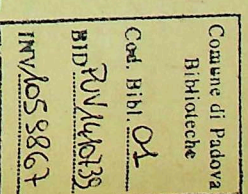 Comune di Padova
Biblioteche
Cod. Bibl. 01
BID PUV1410739
INV 1059867